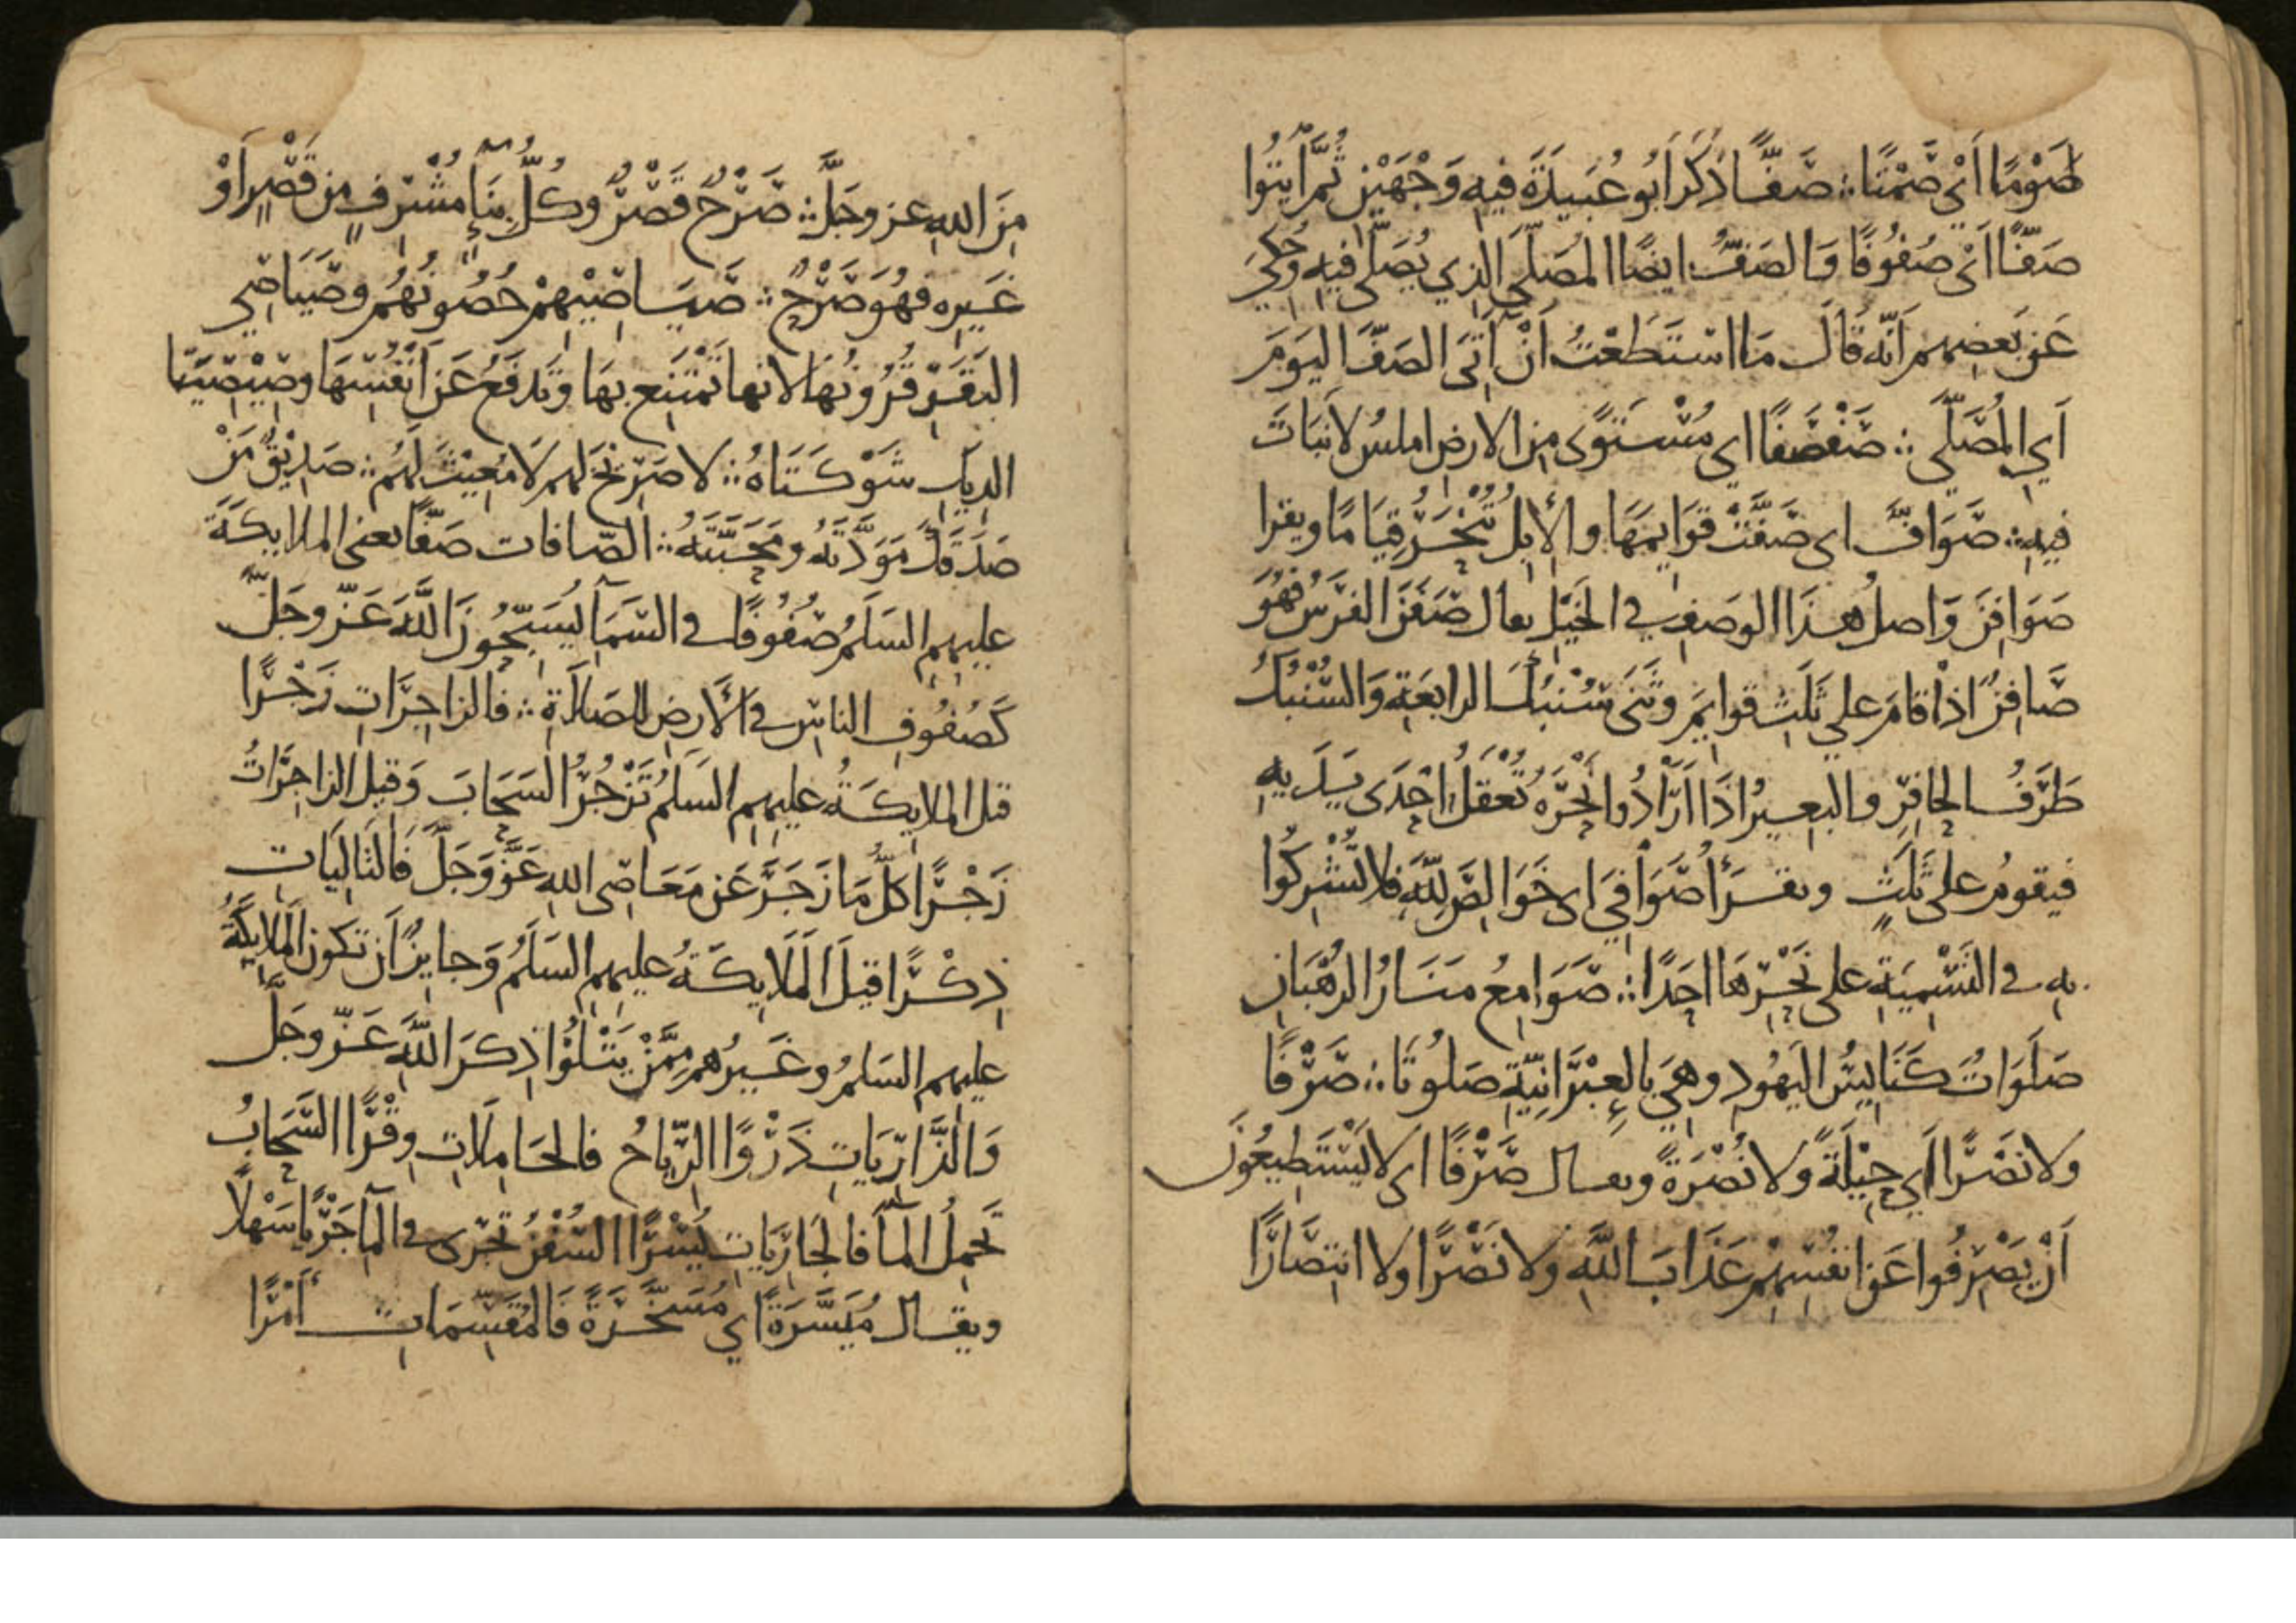 صَوْمًا اَيْ صَمْتًا ∴ صَفًّا ذَكَرَ اَبُو عُبَيدَةَ فيهِ وَجْهَيْنِ ثُمَّ ايتُوا
صَفًّا اَيْ صُفُوفًا وَالصَفُّ ايضًا المُصَلَّى الذي يُصَلَّى فيهِ وَحُكِيَ
عَن بَعضِهم اَنّه قَالَ مَا اسْتَطَعْتُ اَنْ آتِيَ الصَفَّ اليَومَ
اَيِ المُصَلَّى ∴ صَفْصَفًا اي مُسْتَوًى مِن الارضِ املسُ لانَبَاتَ
فيهِ ∴ صَوَافَّ اى صَفَّتْ قوَايمَهَا والإبِلُ تُنْحَرُ قِيَامًا ويقرا
صَوَافِنَ وَاصلُ هذَا الوصَفِ في الخَيْلِ يقال صَفَنَ الفَرَسُ فَهُوَ
صَافِنٌ اذا قامَ على ثَلَثِ قوايمَ وثَنَى سُنْبُكَ الرابعَةِ وَالسُّنْبُكُ
طَرَفُ الحافِرِ والبعيرُ اذَا اَرَادُوا نَحْرَهُ تُعْقَلُ اِحْدَى يَدَيهِ
فيقومُ على ثَلَثٍ ويقرَأ صَوَافِيَ اى خَوَالِصَ لِلّهِ فلا تُشْرِكُوا
بِهِ في التَسْمِيَةِ على نَحْرِهَا احَدًا ∴ صَوَامِعُ مَنَارُ الرُهْبَانِ
صَلَوَاتٌ كَنَايسُ اليَهُودِ وهِيَ بالعِبْرَانِيّةِ صَلُوتَا ∴ صَرْفًا
ولا نَصْرًا اَي حِيْلَةً ولا نُصْرَةً ويقال صَرْفًا اى لا يَسْتَطِيعُونَ
اَنْ يَصْرِفُوا عَن انفُسِهِمْ عَذَابَ اللّهِ ولا نَصْرًا ولا انتِصَارًا
مِنَ اللهِ عز وجَلَّ ∴ صَرْحٌ قَصْرٌ وكُلُّ بِنَآءٍ مُشْرِفٍ مِن قَصْرٍ اَوْ
غَيرِه فهُوَ صَرْحٌ ∴ صَيَاصِيْهِمْ حُصُونُهُم وصَيَاصِي
البَقَرِ قُرُونُهَا لانها تَمْتَنِع بهَا وَتَدفَعُ عَن اَنْفُسِهَا وصِيْصِيَتَا
الديك شَوْكَتَاهُ ∴ لا صَرِيْخَ لهم لَا مُغِيْثَ لَهُم ∴ صَدِيْقٌ مَنْ
صَدَقَكَ مَوَدَّتَه ومَحَبَّتَهُ ∴ الصّافات صَفًّا يعنى الملايكَةَ
عليهم السَلَمُ صُفُوفًا في السَمَآ يُسَبّحُونَ اللّهَ عَزّ وجَلَّ
كَصُفُوفِ الناسِ في الأَرضِ للصَلَاةِ ∴ فالزاجِرَاتِ زَجْرًا
قيل الملايكَةُ عليهم السَلَمُ تَزْجُرُ السَحَابَ وَقيل الزاجِرَاتُ
زَجْرًا كلُّ مَا زَجَرَ عَن مَعَاصِى اللهِ عَزَّ وَجَلَّ فَالتَالِيَاتِ
ذِكْرًا قيلَ المَلَايكَةُ عليهم السَلَمُ وَجايزٌ اَن تكونَ المَلايِكَةُ
عليهم السَلمُ وغَيرُهم مِمَّنْ يَتْلُوا ذِكرَ اللّهِ عَزّ وجَلَّ
وَالذَارِيَاتِ ذَرْوًا الرِّيَاحُ فالحَامِلَاتِ وِقْرًا السَحَابُ
تَحمِلُ المَآءَ فالجَارِيَاتِ يُسْرًا السُفُنُ تَجْرى في المآءِ جَرْيًا سَهْلًا
ويقال مُيَسَّرَةً اي مُسَخَّرَةً فَالمُقَسِّمَاتِ أَمْرًا